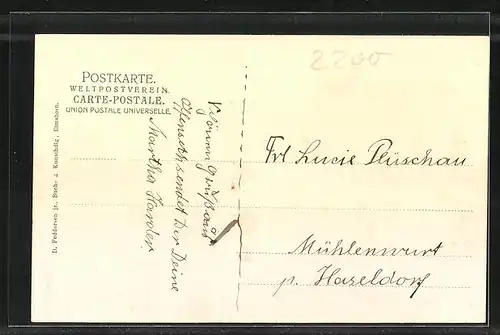 2200
POSTKARTE.
WELTPOSTVEREIN.
CARTE-POSTALE.
UNION POSTALE UNIVERSELLE.
D. Feddersen jr., Buch- u. Kunsthdlg., Elmshorn.
sendet Dir Deine
Martha Harder.
Frl Lucie Plüschau
Mühlenwurt
p. Haseldorf